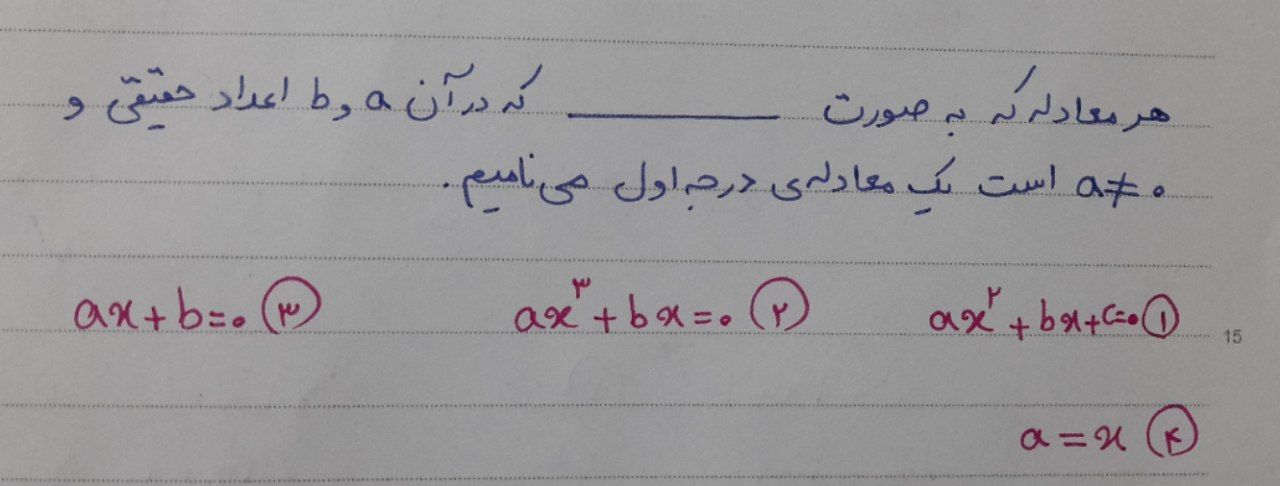 هر معادله که به صورت ________ که در آن a و b اعداد حقیقی و
a≠۰ است یک معادله‌ی درجه اول می‌نامیم.
① ax²+bx+c=۰ ② ax³+bx=۰ ③ ax+b=۰
15
④ a=x